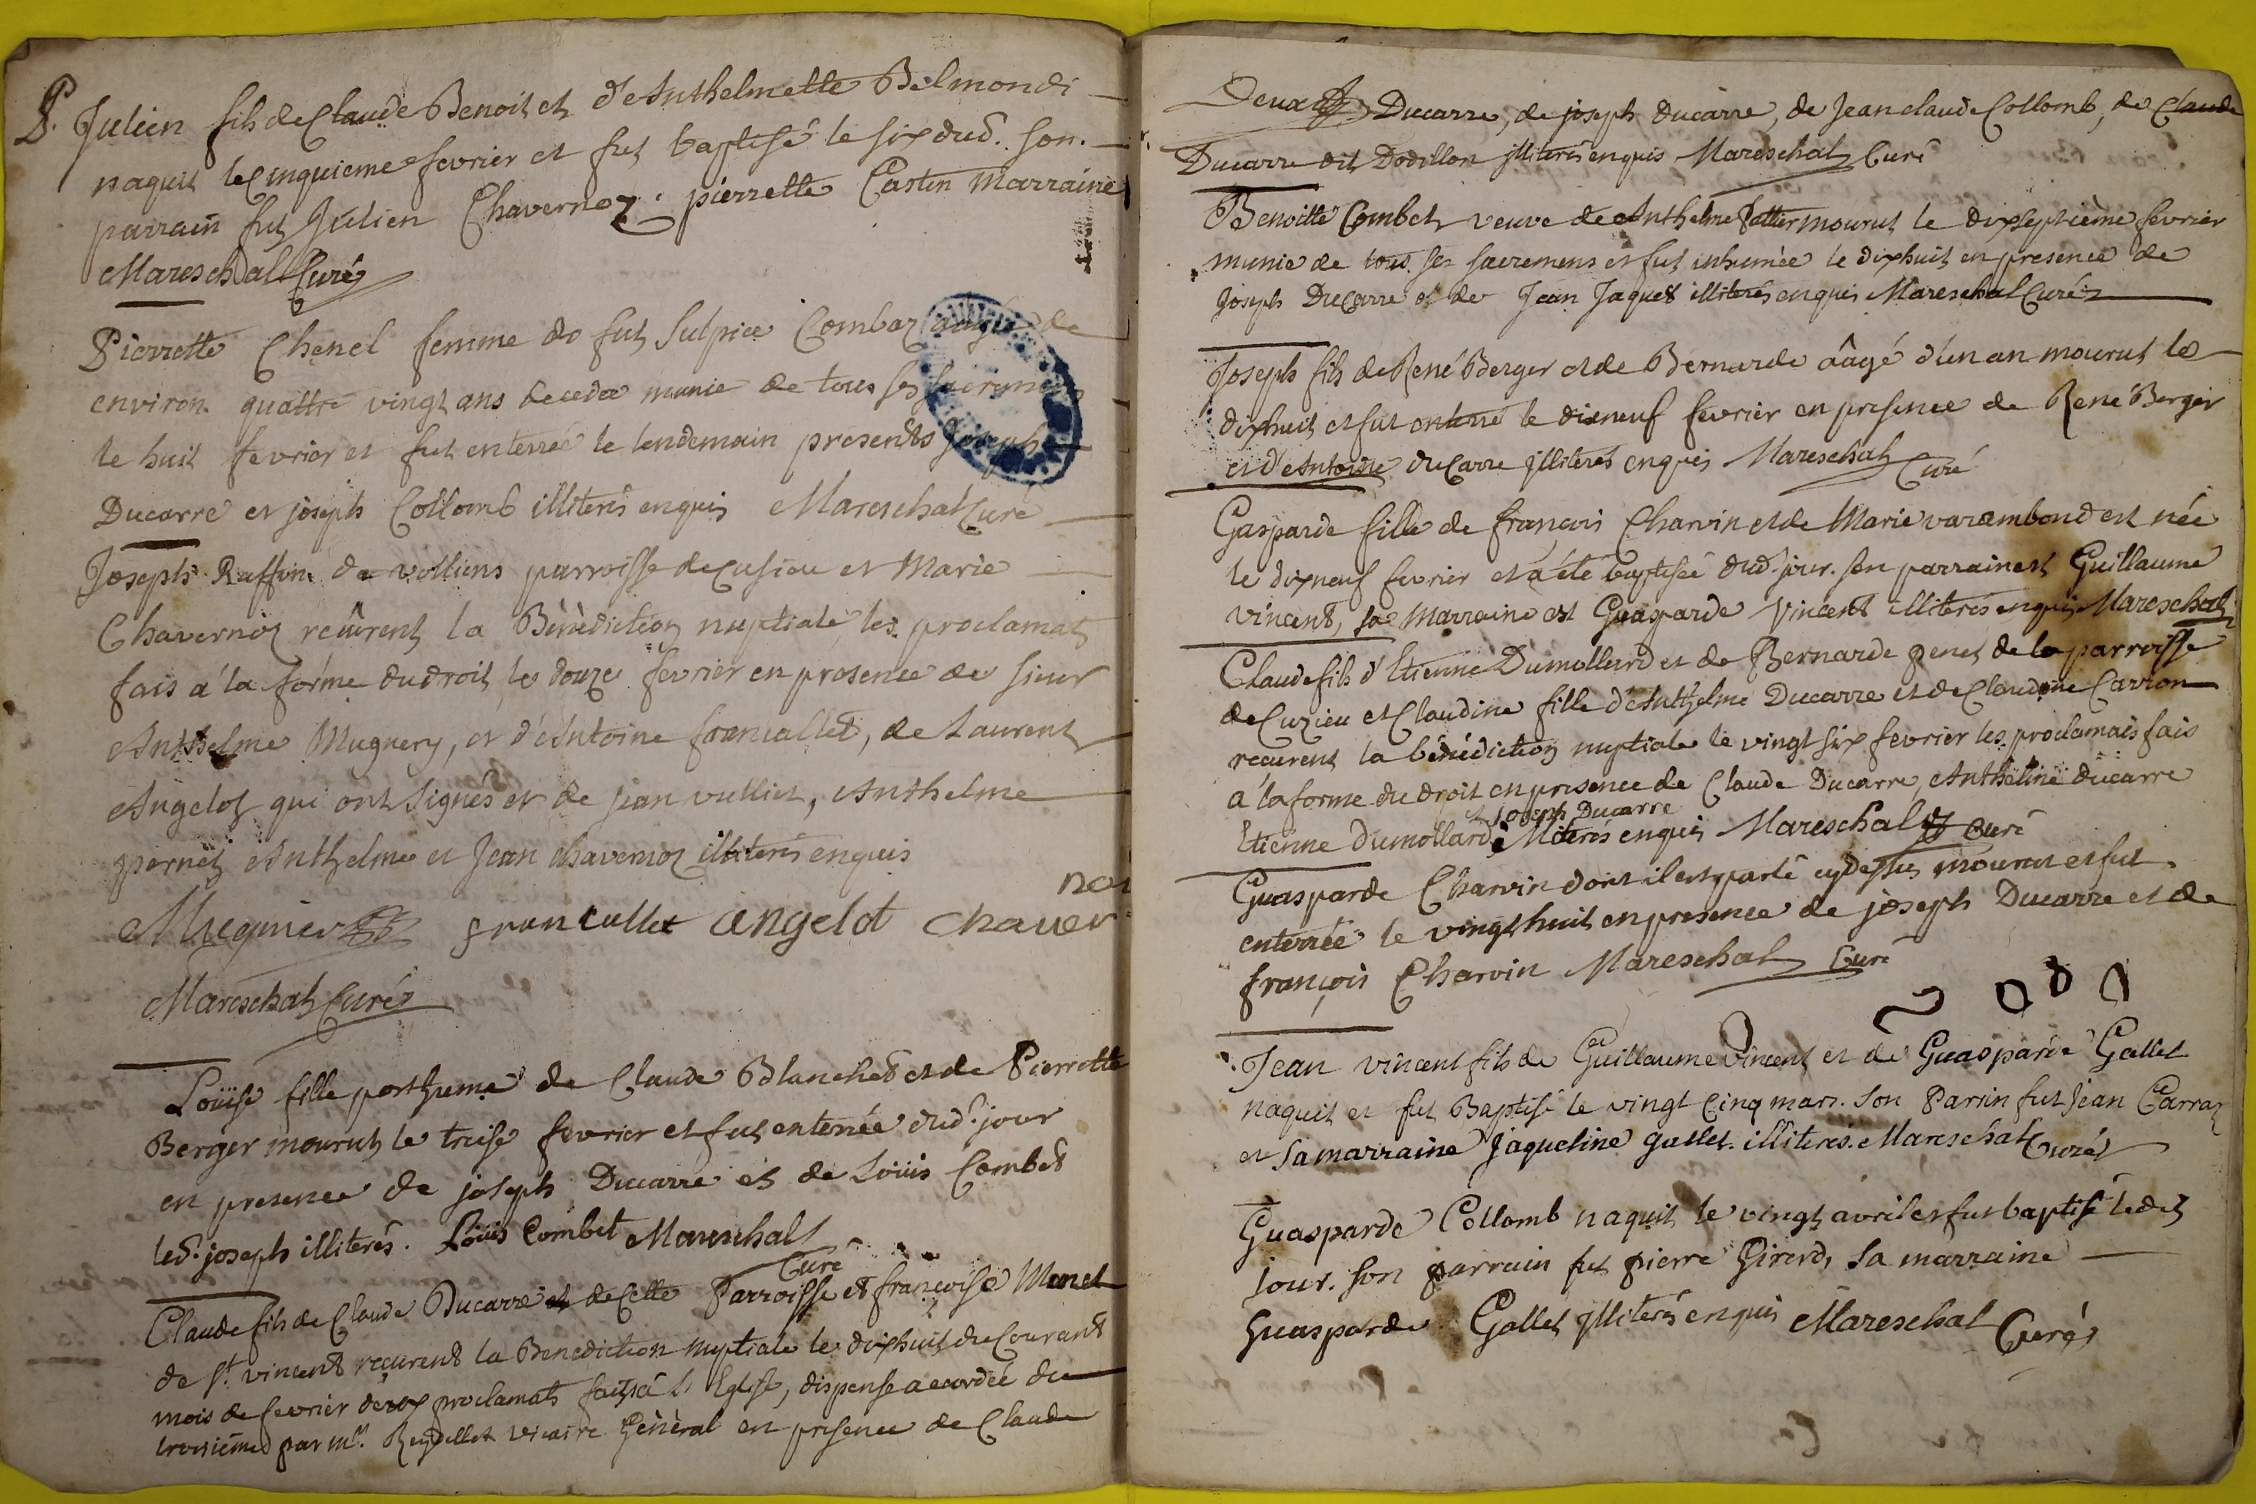 P. Julien fils de Claude Benoit et d'Anthelmette Belmondi
naquit le cinquieme fevrier et fut baptisé le six dud. son
parrain fut Julien Chavernoz. pierrette Castin Marraine
Mareschal Curé
Pierrette Chenel femme de fut Sulpice Combaz de
environ quattre vingt ans decedee munie de tous ses sacremens
le huit fevrier et fut enterrée le lendemain presents Joseph
Ducarre et joseph Collomb illiterés enquis Mareschal Curé
Joseph Ruffin de volliens parroisse de Cusieu et Marie
Chavernoz reçûrent la Bènèdiction nuptiale les proclamats
fais a la forme du droit le douze fevrier en presence de sieur
Anthelme Mugnery, et d'Antoine francallet, de Laurent
Angelot qui ont signés et de jean vulliet, Anthelme
pernet Anthelme et Jean chavernoz illiterés enquis
Mugnier francallet angelot chaver
noz
Mareschal Curé
Loüise fille posthume de Claude Blanchet et de Pierrette
Berger mourut le treise fevrier et fut enterrée dud. jour
en presence de joseph Ducarre et de Loüis Combet
led. joseph illiterés. Loüis Combet Mareschal
Curé
Claude fils de Claude Ducarre et de Cette Parroisse et françoise Monet
de St. vincent reçurent la Benediction nuptiale le dixhuit du Courant
mois de fevrier deux proclamats faits à l'Eglise, dispense accordée du
troisième par Mr. Reydellet vicaire Général en presence de Claude
Deux Ducarre, de joseph Ducarre, de Jean claude Collomb, de Claude
Ducarre dit Dodillon illiterés enquis Mareschal Curé
Benoitte Combet veuve de Anthelme mourut le dixseptième fevrier
munie de tous ses sacremens et fut inhumée le dixhuit en presence de
Joseph DuCarre et de Jean Jaquet illiterés enquis Mareschal Curé
Joseph fils de René Berger et de Bernarde âagé d'un an mourut le
dixhuit et fut enterré le disneuf fevrier en presence de René Berger
et d'Antoine duCarre illiterés enquis Mareschal Curé
Gasparde fille de françois Charvin et de Marie varambond est née
le dixneuf fevrier et a été baptisée dud. jour. son parrain est Guillaume
vincent, sa Marraine est Guasparde Vincent illiterés enquis Mareschal
Claude fils d'Etienne Dumollard et de Bernarde genet de la parroisse
de Cuzieu et Claudine fille d'Anthelme Ducarre et de Claudine Carron
reçurent la bénédiction nuptiale le vingt six fevrier les proclamats fais
a la forme du droit en presence de Claude Ducarre, Anthelme ducarre
et joseph Ducarre
Etienne Dumollard illiterés enquis Mareschal Curé
Guasparde Charvin dont il est parlé cy dessus mourut et fut
enterrée le vingthuit en presence de joseph Ducarre et de
françois Charvin Mareschal Curé
Jean vincent fils de Guillaume Vincent et de Guasparde Gallet
naquit et fut Baptisé le vingt Cinq mars. son Parrin fut Jean Carraz
et sa marraine Jaqueline gallet. illiterés. Mareschal Curé
Guasparde Collomb naquit le vingt avril et fut baptisé ledit
jour. son parrain fut pierre Girerd, sa marraine
Guasparde Gallet illiterés enquis Mareschal Curé